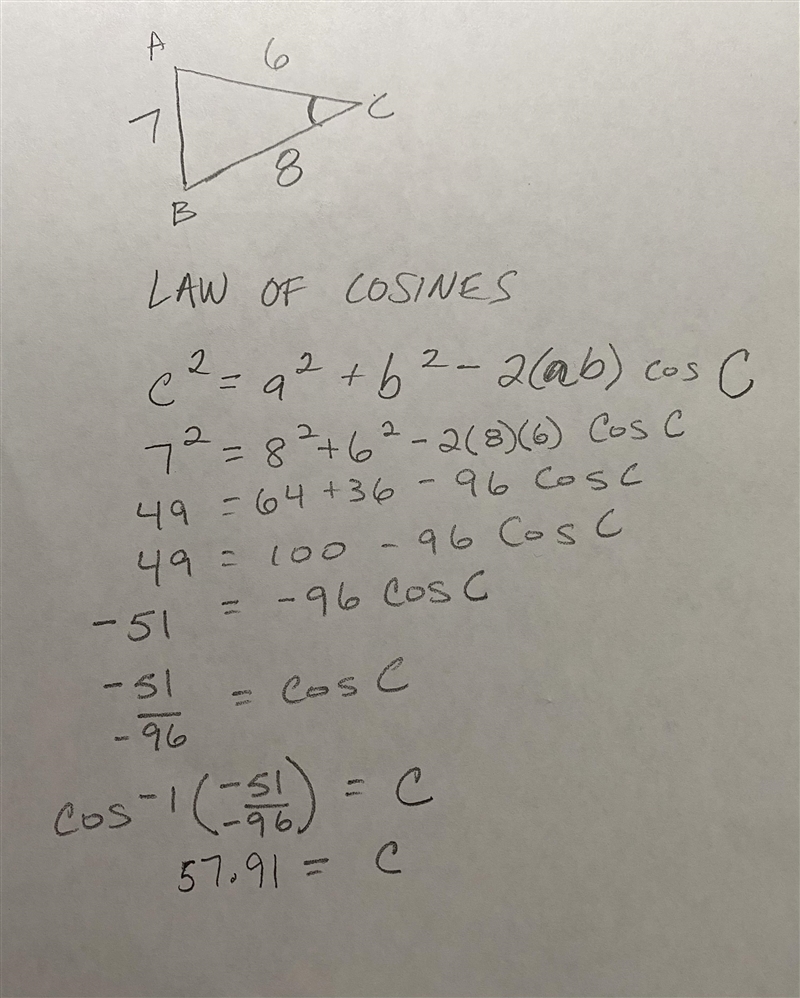 A
6
7
C
8
B
LAW OF COSINES
c² = a² + b² - 2(ab) cos C
7² = 8² + 6² - 2(8)(6) Cos C
49 = 64 + 36 - 96 Cos C
49 = 100 - 96 Cos C
-51 = -96 Cos C
-51/-96 = Cos C
cos⁻¹(-51/-96) = C
57.91 = C